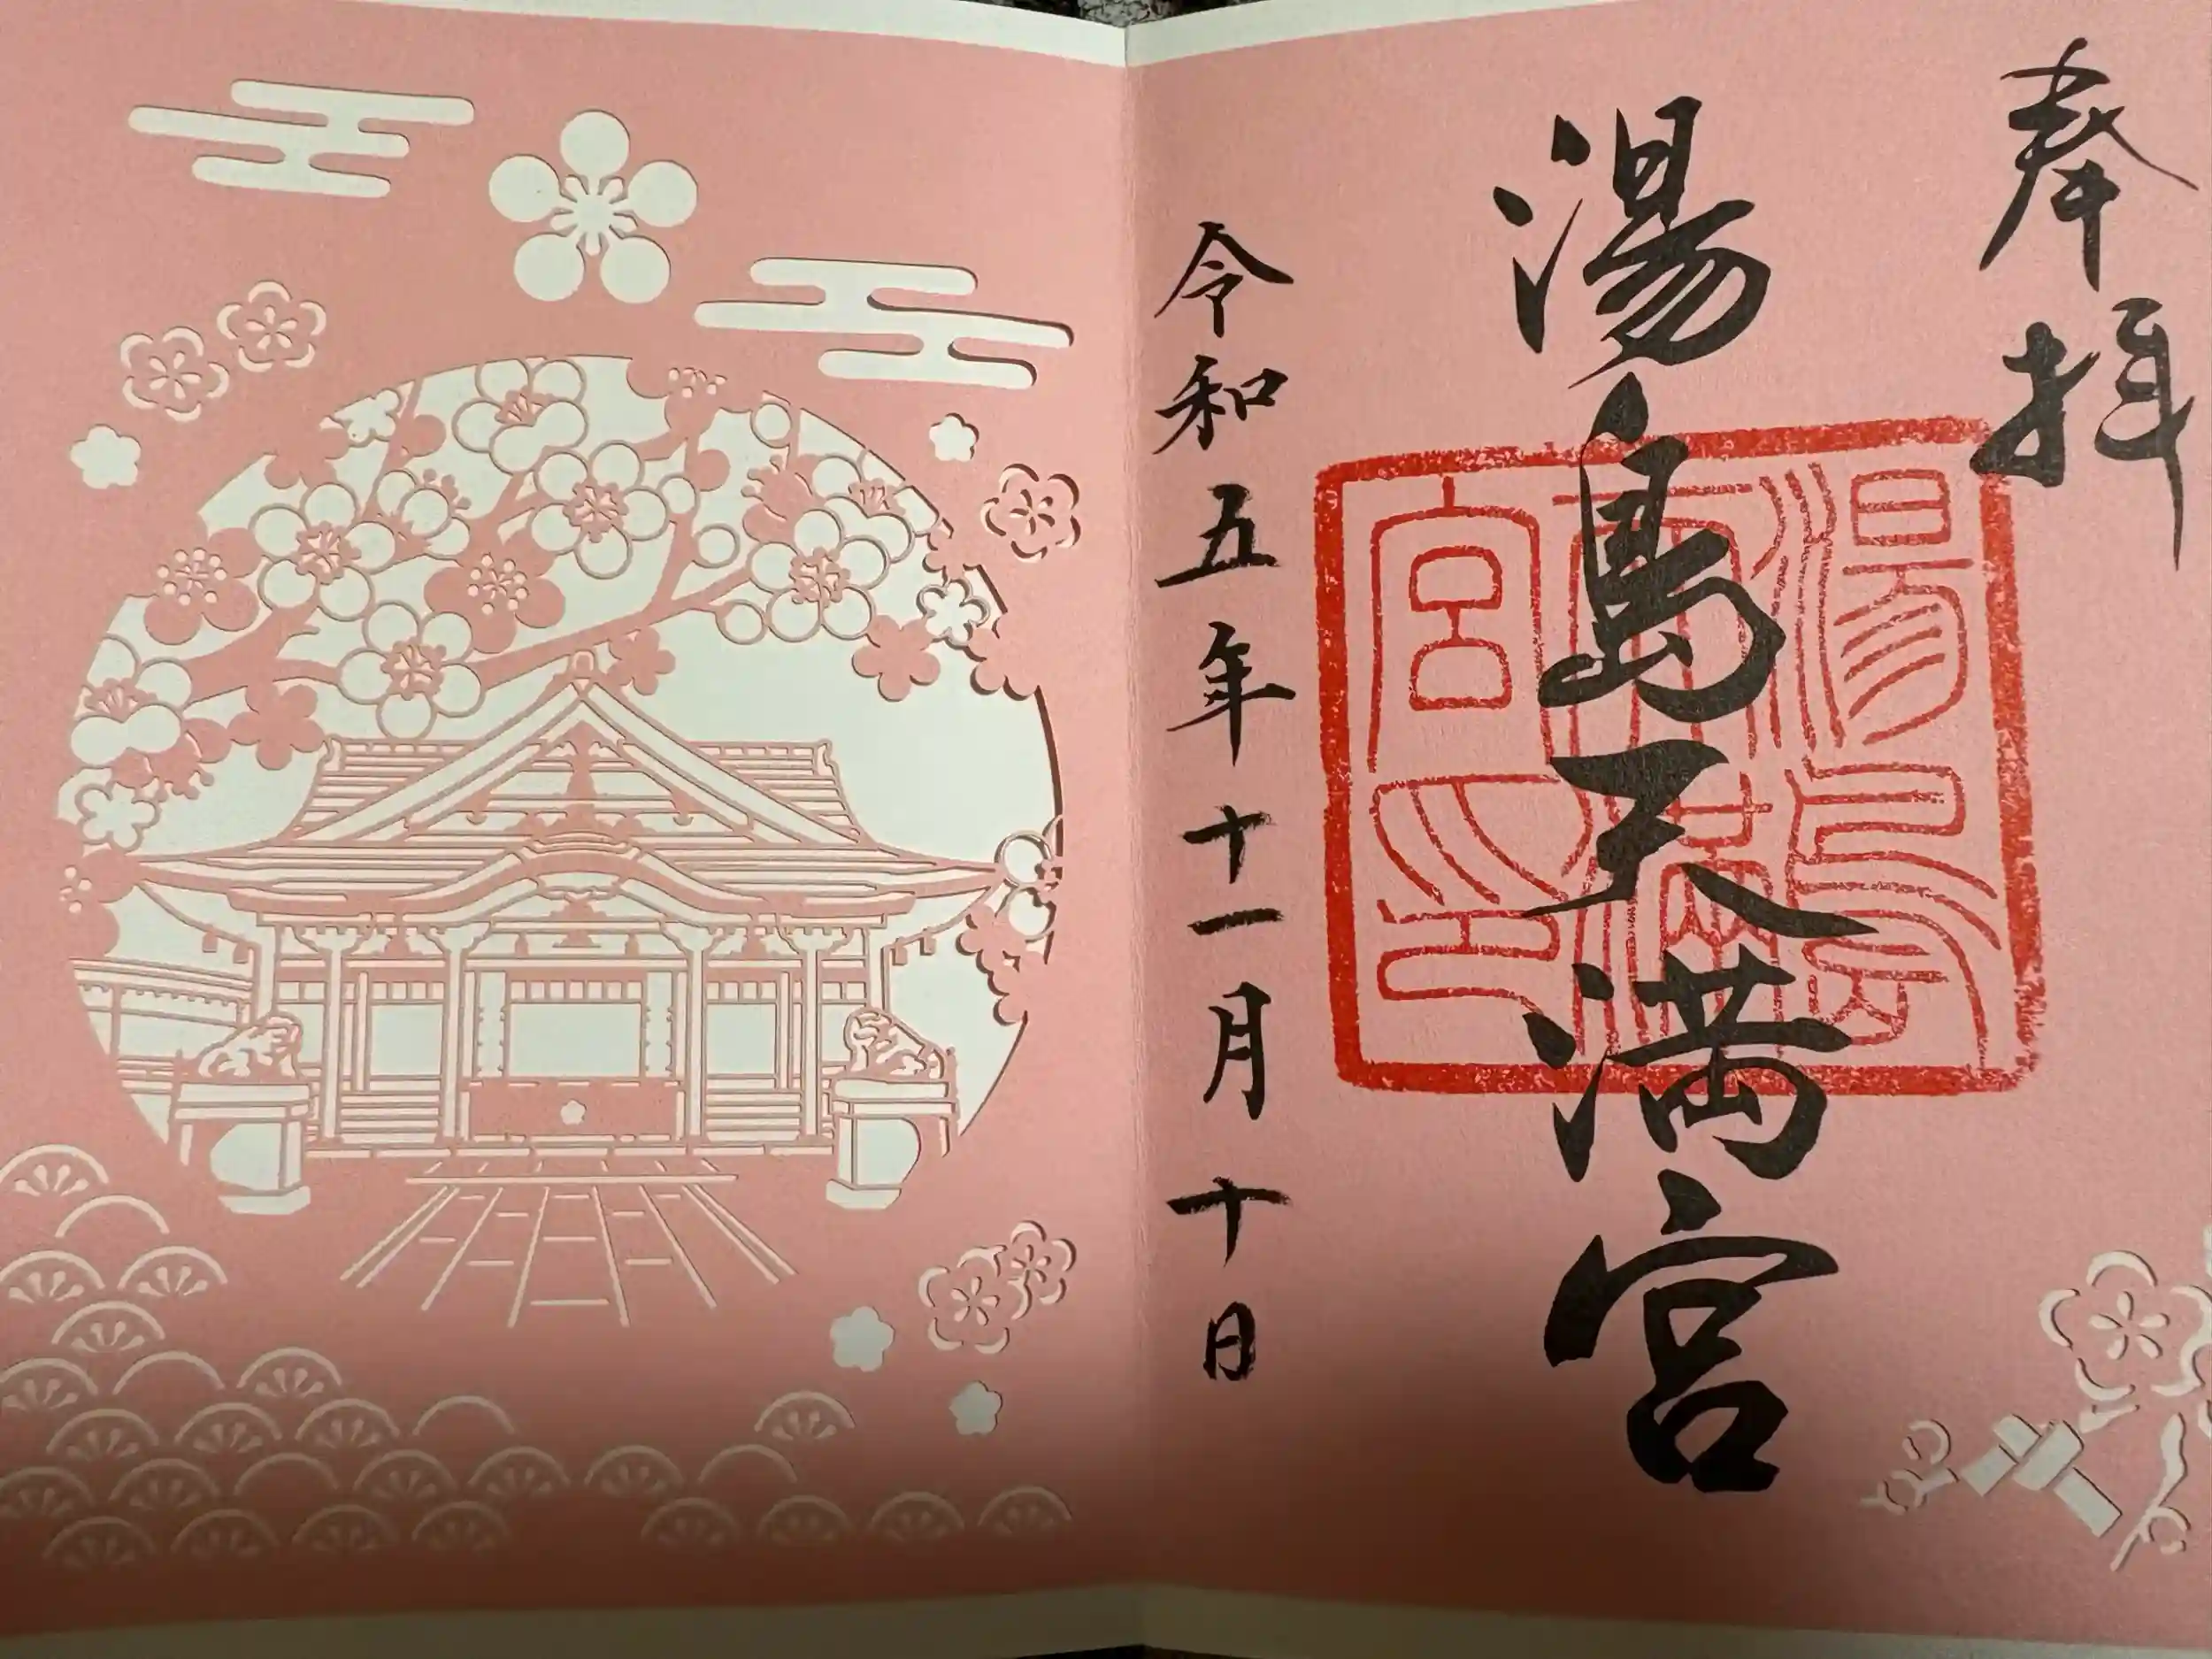 奉拝
湯島天満宮
湯島天満宮印
令和五年十一月十日